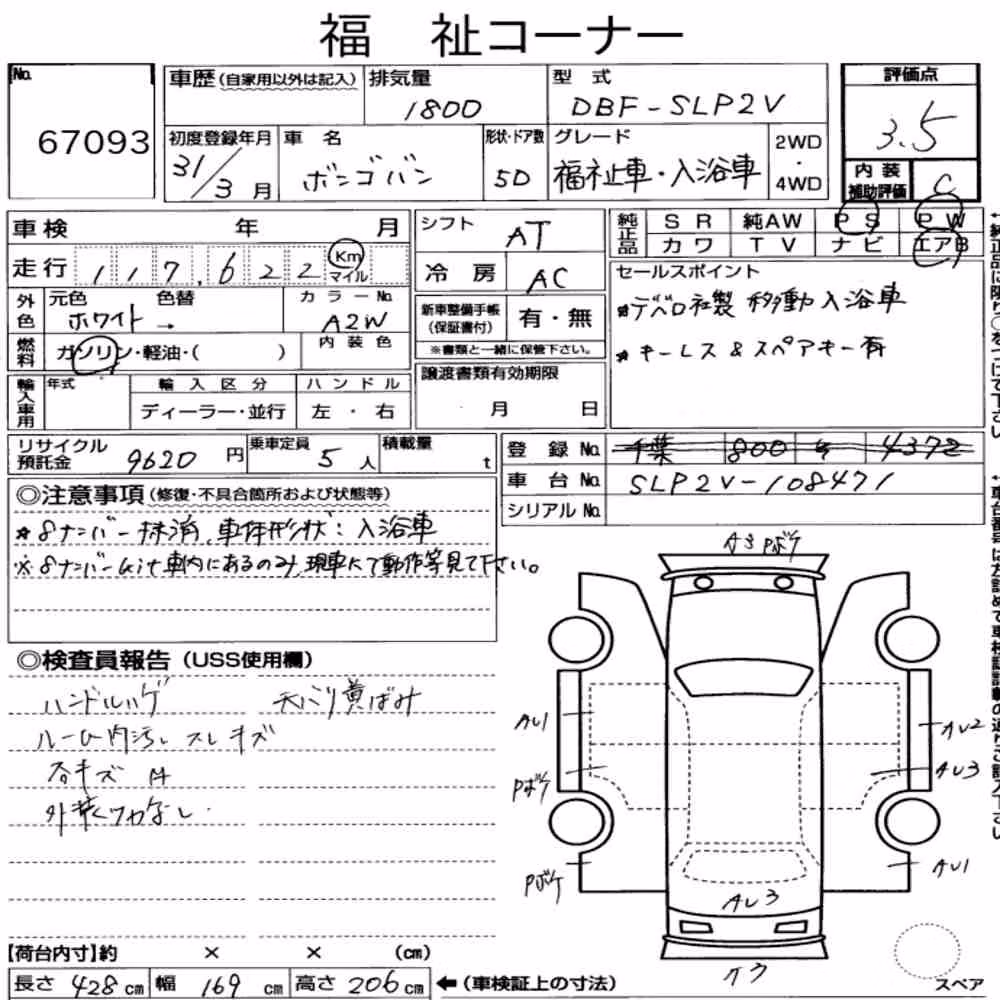 福 祉コーナー
No.
67093
車歴(自家用以外は記入)
排気量
1800
型 式
DBF-SLP2V
評価点
3.5
初度登録年月
31/3月
車 名
ボンゴバン
形状・ドア数
5D
グレード
福祉車・入浴車
2WD
・
4WD
内 装
補助評価
C
車検 年 月
シフト
AT
純正品
S R 純AW P S P W
カワ T V ナビ エアB
走行 117,622 Km
マイル
冷 房
AC
セールスポイント
*デベロ社製 移動入浴車
*キーレス&スペアキー有
外色
元色 色替
ホワイト →
カラーNo.
A2W
新車整備手帳
(保証書付)
有・無
※書類と一緒に保管下さい。
燃料
ガソリン・軽油・( )
内 装 色
譲渡書類有効期限
月 日
輸入車用
年式
輸 入 区 分
ディーラー・並行
ハ ン ド ル
左 ・ 右
リサイクル
預託金
9620 円
乗車定員
5 人
積載量
t
登 録 No.
千葉 800 4372
車 台 No.
SLP2V-108471
シリアルNo.
◎注意事項(修復・不具合箇所および状態等)
*8ナンバー抹消、車体形状:入浴車
※8ナンバーkit車内にあるのみ、現車にて動作等見て下さい。
◎検査員報告(USS使用欄)
ハンドルハゲ
天バリ黄ばみ
ルーム内汚レ スレキズ
外装ツヤなし
A3 Pボケ
AU1
Pボケ
Pボケ
AU2
AU3
AU1
AU3
スペア
【荷台内寸】約 × × (cm)
長さ 428 cm 幅 169 cm 高さ 206 cm
←(車検証上の寸法)